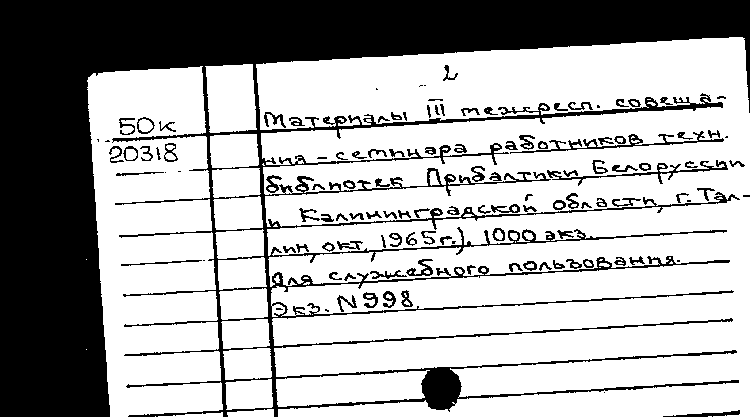 2
50к
20318
Материалы III межресп. совеща-
ния-семинара работников техн.
библиотек Прибалтики, Белоруссии
и Калининградской области, г. Тал-
лин, окт., 1965г.). 1000 экз.
Для служебного пользования.
Экз. N998.